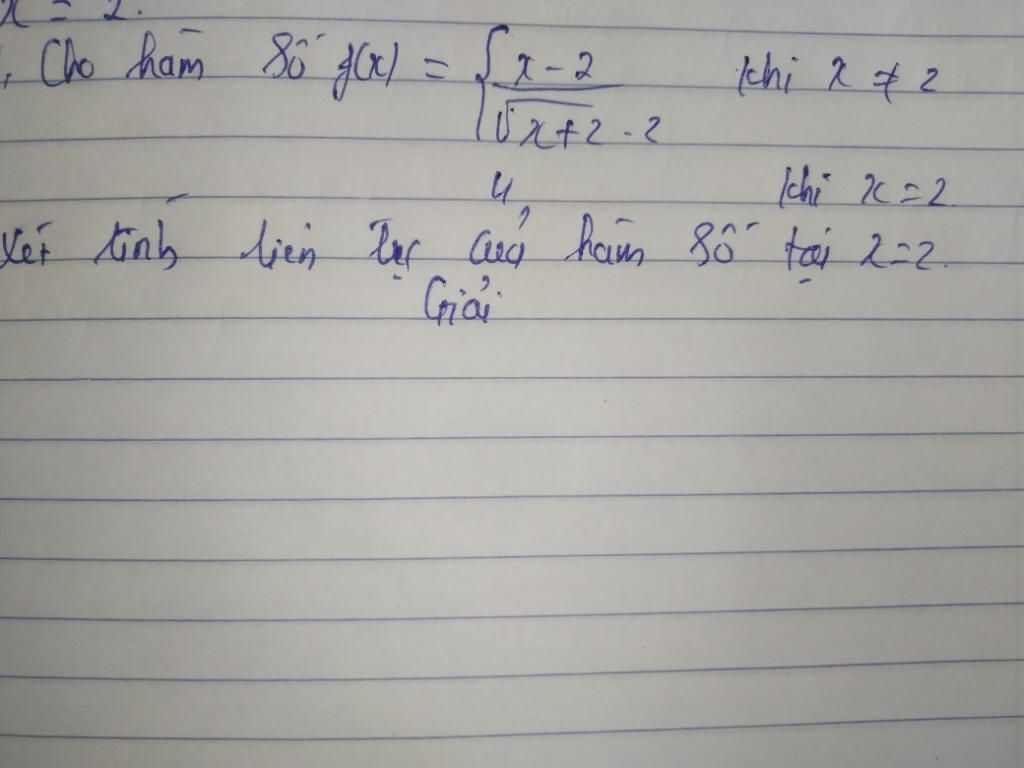 x = 2.
, Cho hàm số f(x) = { x - 2 / √x+2 - 2 khi x ≠ 2
4 khi x = 2.
Xét tính liên tục của hàm số tại x = 2.
Giải